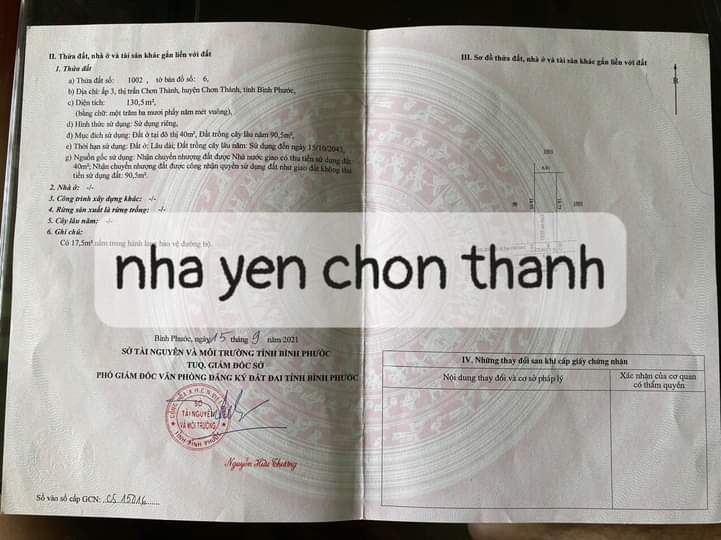 II. Thửa đất, nhà ở và tài sản khác gắn liền với đất
1. Thửa đất
a) Thửa đất số: 1002 , tờ bản đồ số: 6,
b) Địa chỉ: ấp 3, thị trấn Chơn Thành, huyện Chơn Thành, tỉnh Bình Phước,
c) Diện tích: 130,5m²,
(bằng chữ: một trăm ba mươi phẩy năm mét vuông),
d) Hình thức sử dụng: Sử dụng riêng,
đ) Mục đích sử dụng: Đất ở tại đô thị 40m², Đất trồng cây lâu năm 90,5m²,
e) Thời hạn sử dụng: Đất ở: Lâu dài; Đất trồng cây lâu năm: Sử dụng đến ngày 15/10/2043,
g) Nguồn gốc sử dụng: Nhận chuyển nhượng đất được Nhà nước giao có thu tiền sử dụng đất
40m²; Nhận chuyển nhượng đất được công nhận quyền sử dụng đất như giao đất không thu
tiền sử dụng đất: 90,5m².
2. Nhà ở: -/-
3. Công trình xây dựng khác: -/-
4. Rừng sản xuất là rừng trồng: -/-
5. Cây lâu năm: -/-
6. Ghi chú:
Có 17,5m² nằm trong hành lang bảo vệ đường bộ.
nha yen chon thanh
Bình Phước, ngày 15 tháng 9 năm 2021
SỞ TÀI NGUYÊN VÀ MÔI TRƯỜNG TỈNH BÌNH PHƯỚC
TUQ. GIÁM ĐỐC SỞ
PHÓ GIÁM ĐỐC VĂN PHÒNG ĐĂNG KÝ ĐẤT ĐAI TỈNH BÌNH PHƯỚC
SỞ
TÀI NGUYÊN
VÀ MÔI TRƯỜNG
TỈNH BÌNH PHƯỚC
Nguyễn Hữu Chương
Số vào sổ cấp GCN: CS 15016
III. Sơ đồ thửa đất, nhà ở và tài sản khác gắn liền với đất
B
IV. Những thay đổi sau khi cấp giấy chứng nhận
Nội dung thay đổi và cơ sở pháp lý
Xác nhận của cơ quan
có thẩm quyền